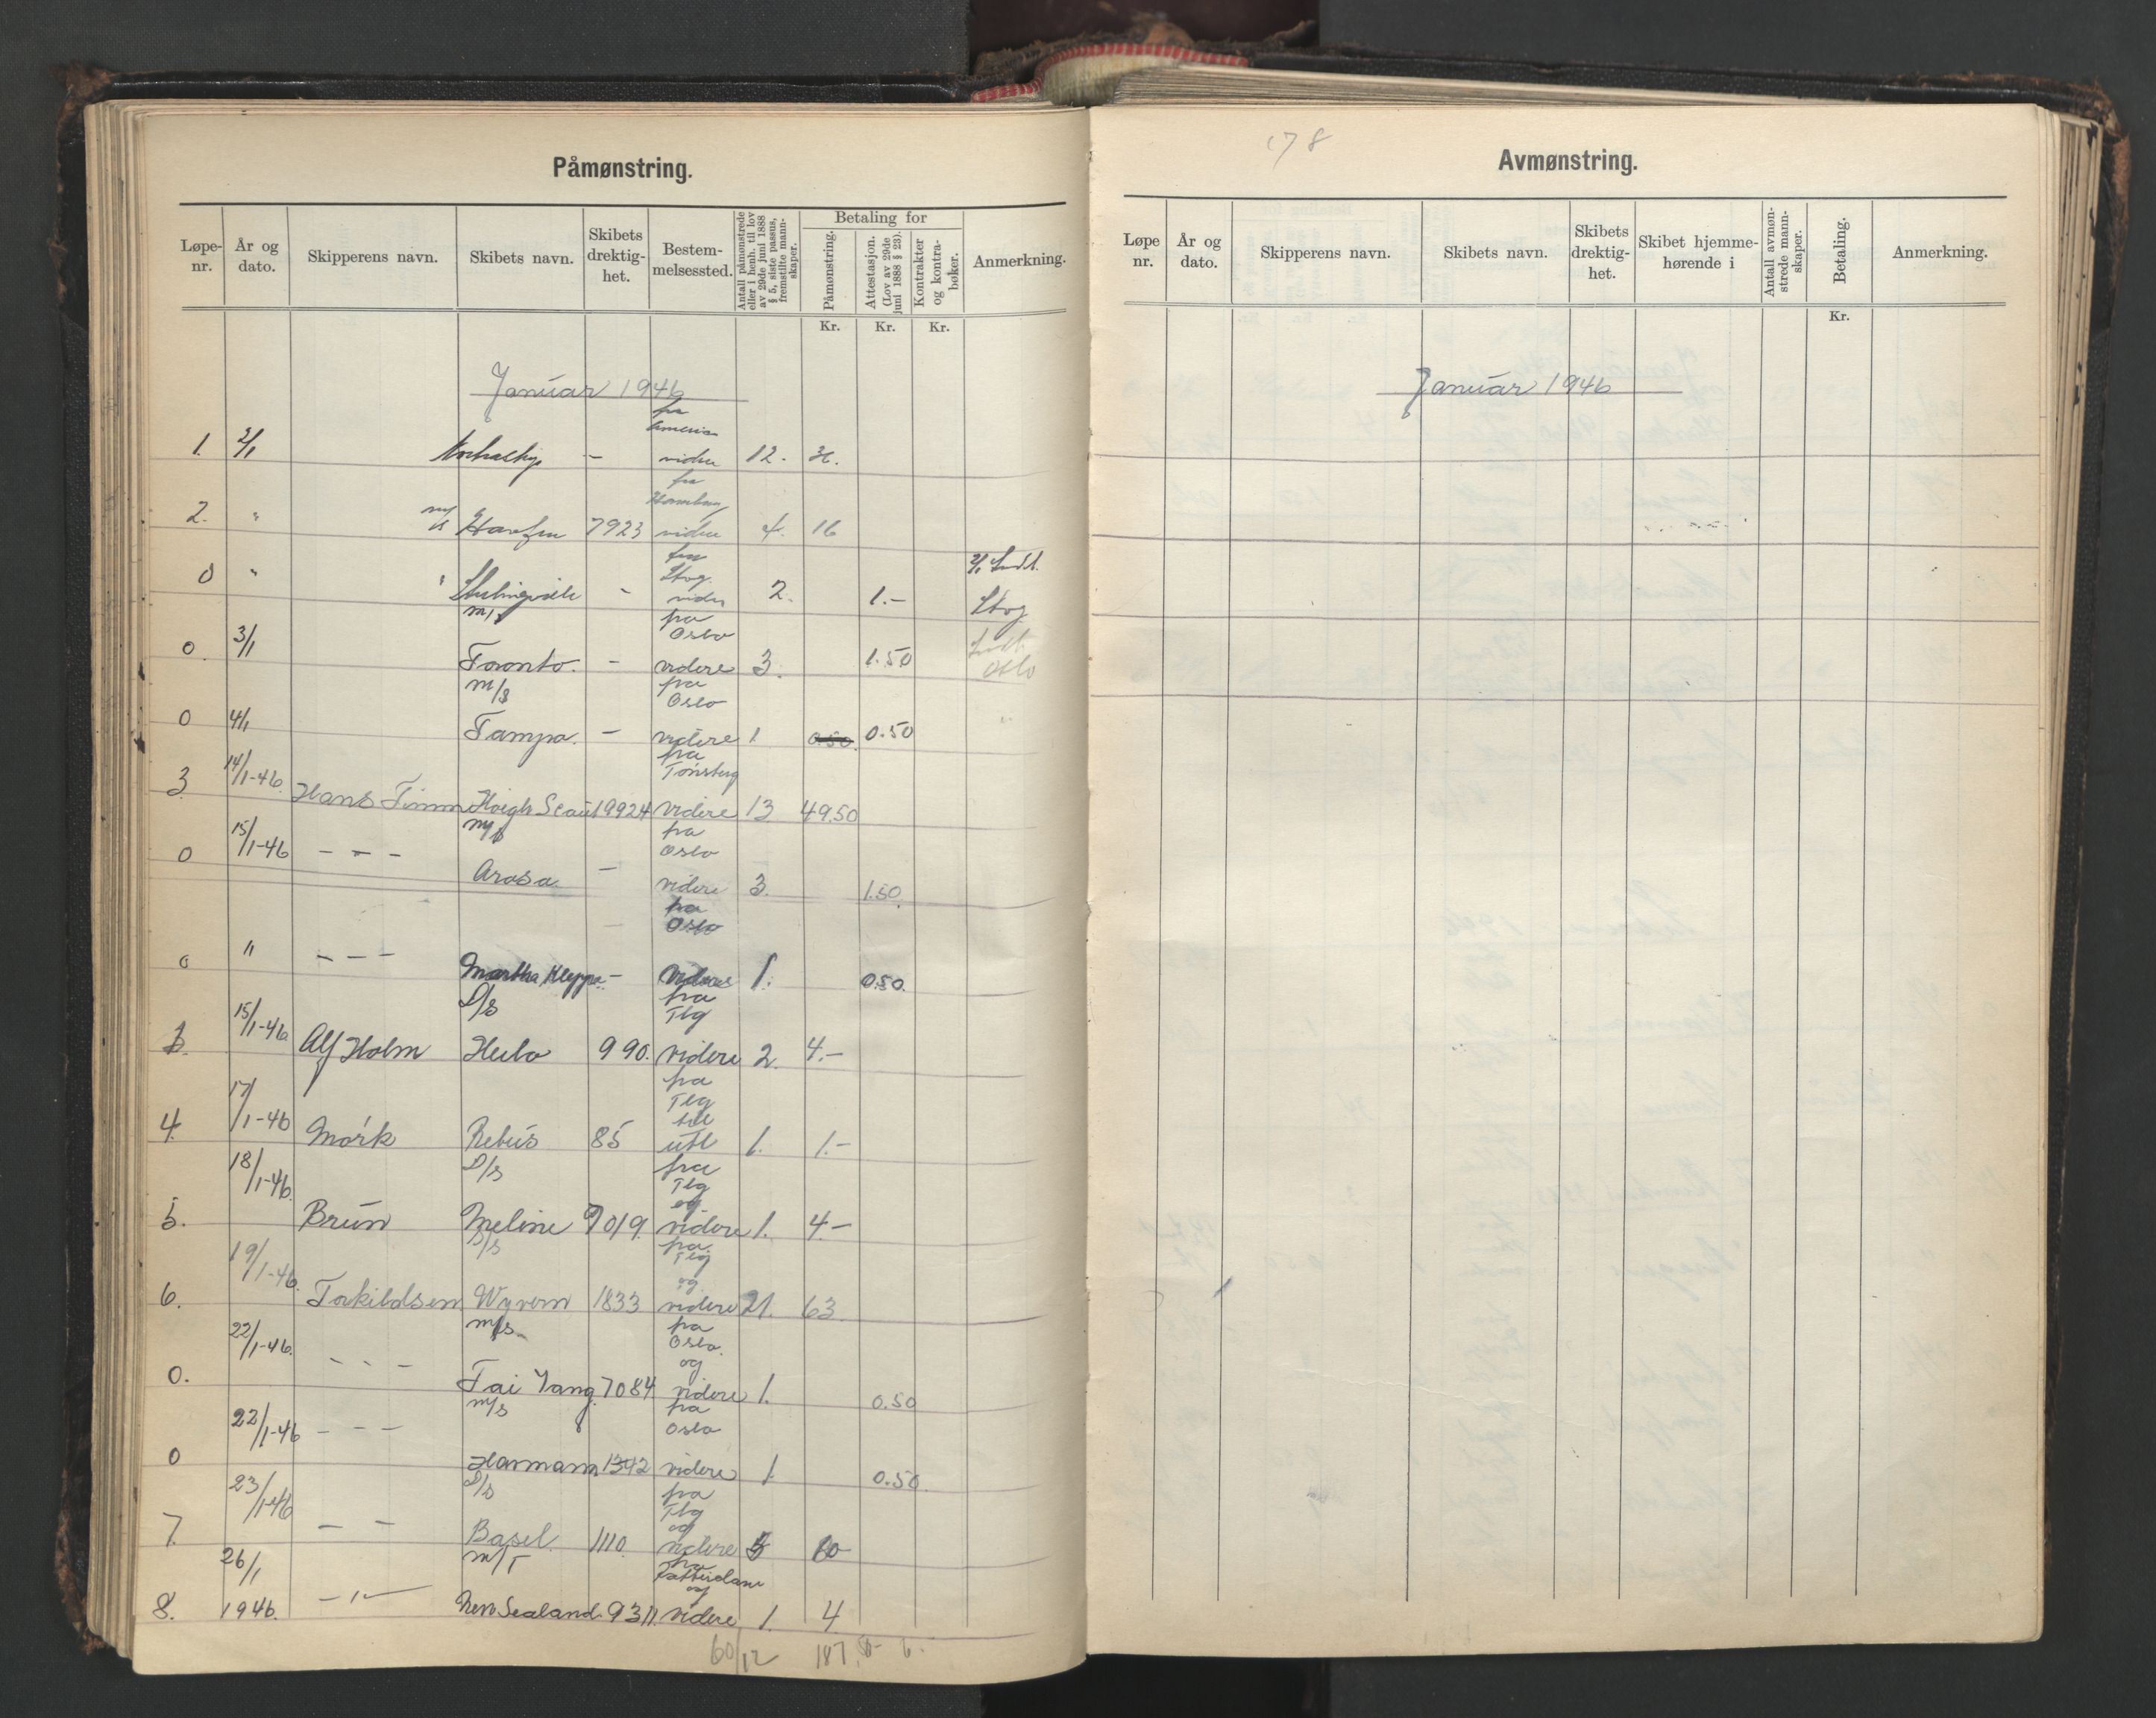 Påmønstring.
Løpe-nr. År og dato. Skipperens navn. Skibets navn. Skibets drektig-het. Bestem-melsessted. Antall påmønstrede eller i henh. til lov av 29de juni 1888 § 5, siste passus, fremstilte mann-skaper. Betaling for Påmønstring. Attestasjon. (Lov av 29de juni 1888 § 23). Kontrakter og kontra-bøker. Anmerkning.
Kr. Kr. Kr.
Januar 1946
fra
1. 2/1 - 12.
fra
2. " 7923 4. 16
fra
Stbg.
0 " - 2. 1.- Stbg
m/s fra
Oslo
0. 3/1 Toronto. - videre 3. 1.50 Oslo
m/s fra
Oslo
0 4/1 Tampa. - videre 1 0.50. 0.50 "
fra
Tønsberg
3. 14/1-46. Hans Timm Høegh Scout 9924 videre 13 49.50
m/s fra
Oslo
0 15/1-46 - - - Arosa. - videre 3. 1.50.
fra
Oslo
0 " - - - Martha Kleppe. - videre 1. 0.50.
D/s fra
Tbg
15/1-46 Alf Holm Herbo 990. videre 2. 4.-
fra
Tbg
til
4. 17/1-46 Mørk Rebus 85 utl 1. 1.-
D/s fra
Tbg
og
5. 18/1-46. Brun Meline 7019. videre 1. 4-
D/s fra
Tbg
og
6. 19/1-46. Torkildsen Wyvern 1833 videre 21. 63.
m/s fra
Oslo.
og
0. 22/1-46. - - - Tai Yang. 7084 videre 1. 0.50
m/s fra
Oslo
0 22/1-46 - - - Hanmann 1342 videre 1. 0.50
D/s fra
Tbg
og
7. 23/1-46 - - Basel. 1110. videre 10-
m/T fra
og
8. 26/1 1946. - " - New Sealand. 9311. videre 1. 4
60/12
178
Avmønstring.
Løpe nr. År og dato. Skipperens navn. Skibets navn. Skibets drektig-het. Skibet hjemme-hørende i Antall avmøn-strede mann-skaper. Betaling. Anmerkning.
Kr.
Januar 1946